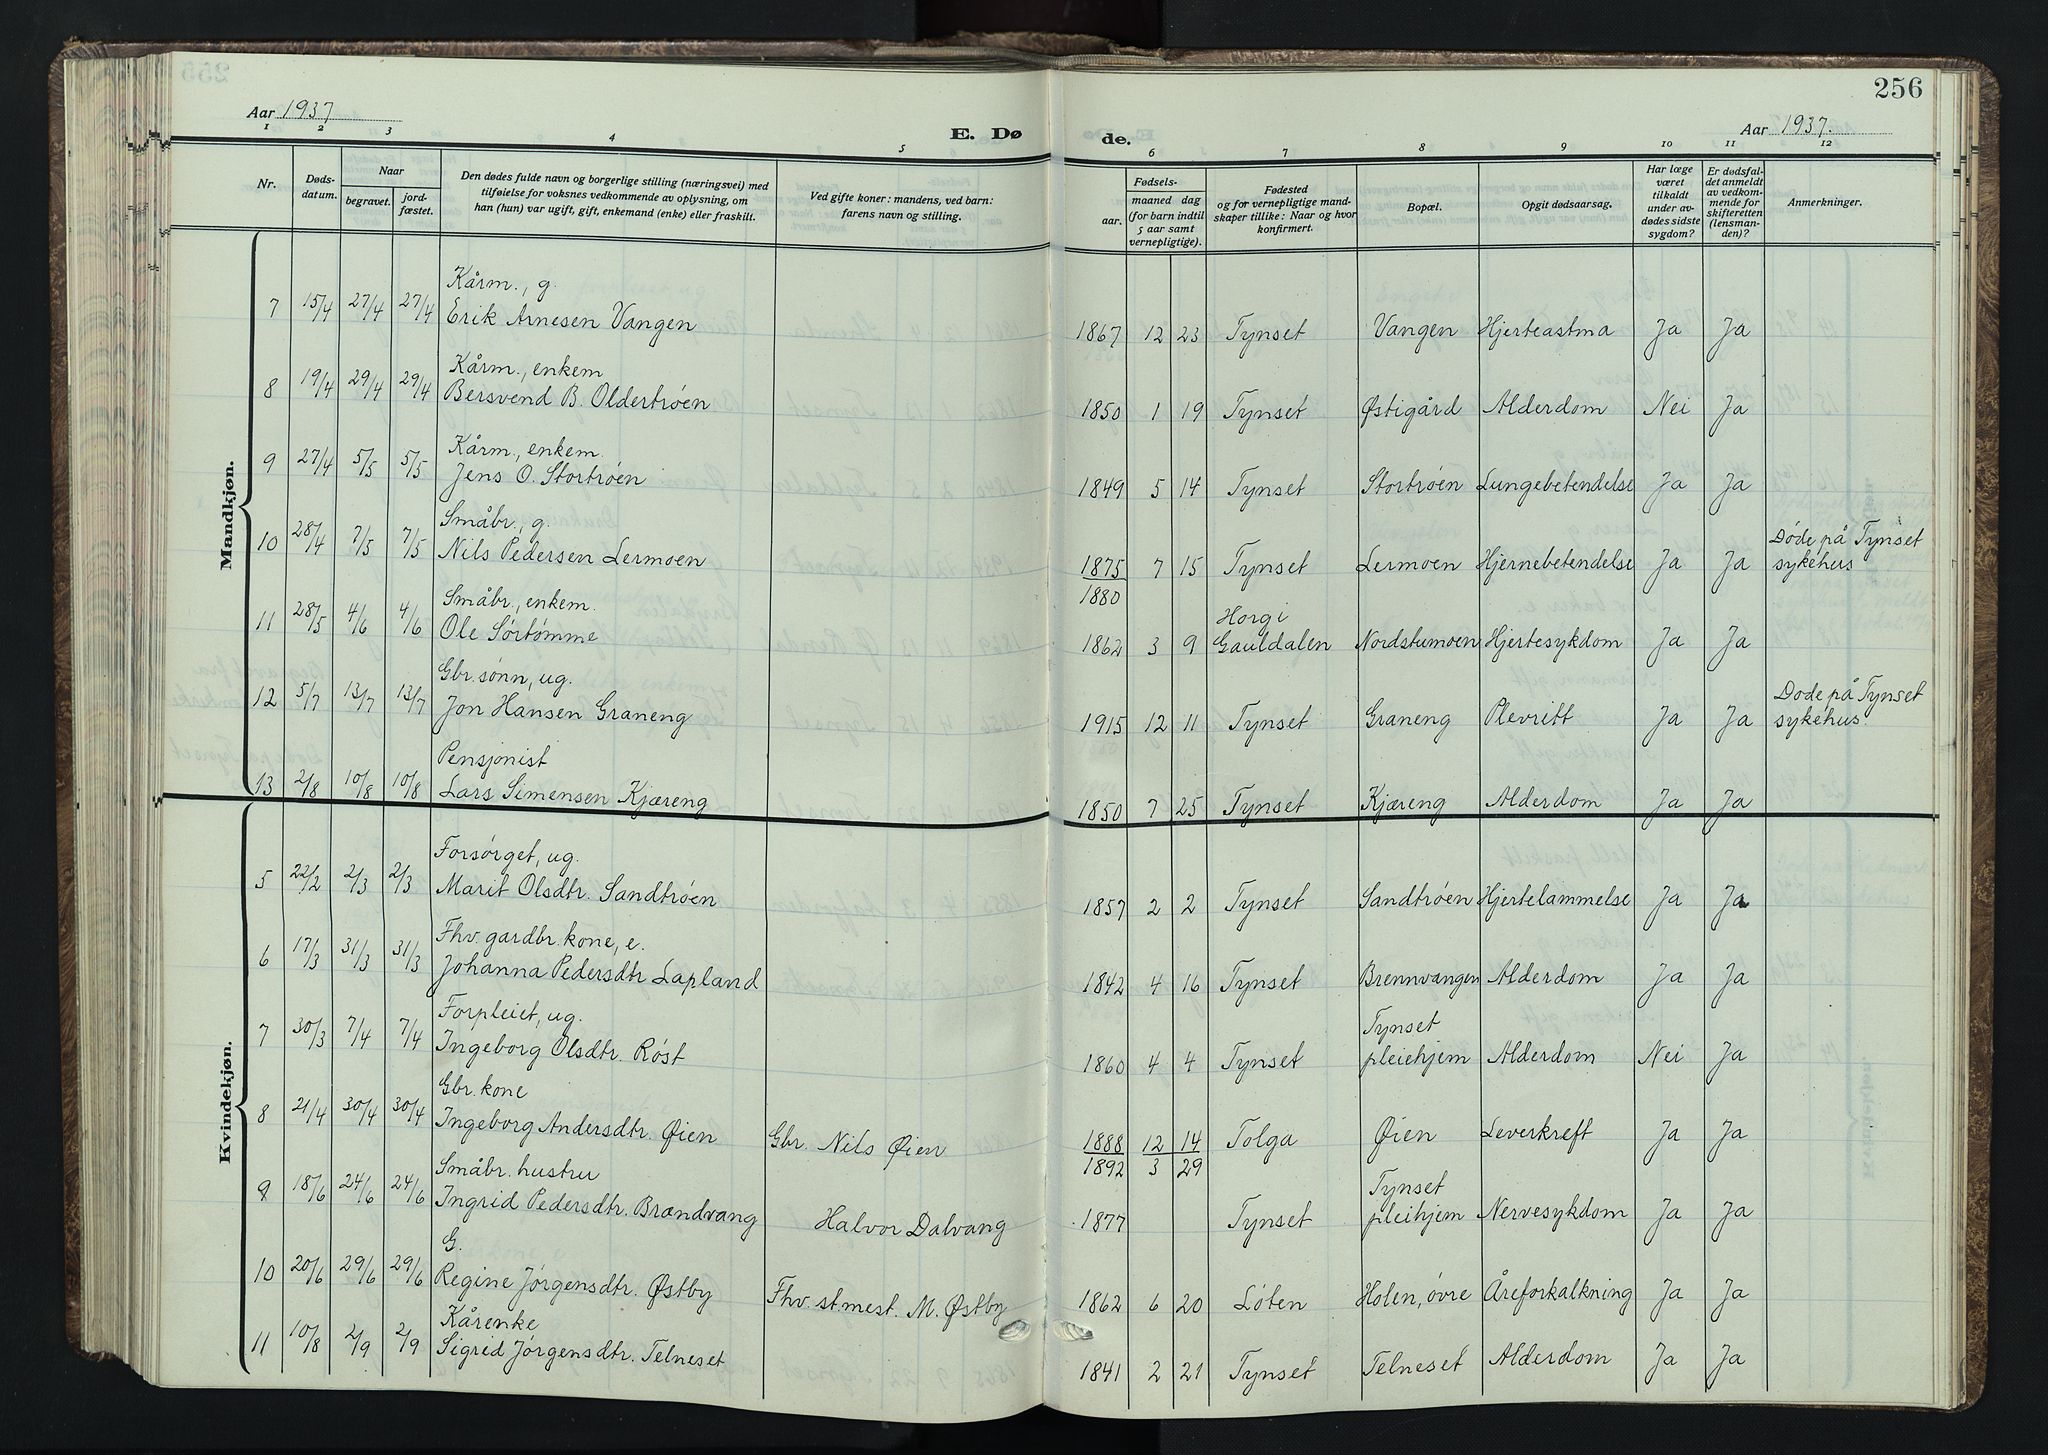 256
Aar 1937
Aar 1937.
E. Dø de.
1 2 3 4 5 6 7 8 9 10 11 12
Nr.
Døds-
datum.
Naar
begravet.
jord-
fæstet.
Den dødes fulde navn og borgerlige stilling (næringsvei) med
tilføielse for voksnes vedkommende av oplysning, om
han (hun) var ugift, gift, enkemand (enke) eller fraskilt.
Ved gifte koner: mandens, ved barn:
farens navn og stilling.
Fødsels-
aar. maaned dag
(for barn indtil
5 aar samt
vernepligtige).
Fødested
og for vernepligtige mand-
skaper tillike: Naar og hvor
konfirmert.
Bopæl.
Opgit dødsaarsag.
Har læge
været
tilkaldt
under av-
dødes sidste
sygdom?
Er dødsfal-
det anmeldt
av vedkom-
mende for
skifteretten
(lensman-
den)?
Anmerkninger.
Mandkjøn.
Kårm., g.
7 15/4 27/4 27/4 Erik Arnesen Vangen 1867 12 23 Tynset Vangen Hjerteastma Ja Ja
Kårm., enkem
8 19/4 29/4 29/4 Bersvend B. Oldertrøen 1850 1 19 Tynset Østigård Alderdom Nei Ja
Kårm., enkem.
9 27/4 5/5 5/5 Jens O. Stortrøen 1849 5 14 Tynset Stortrøen Lungebetendelse Ja Ja
Småbr., g. Døde på Tynset
10 28/4 7/5 7/5 Nils Pedersen Lermoen 1875 7 15 Tynset Lermoen Hjernebetendelse Ja Ja sykehus
1880
Småbr., enkem. Horgi
11 28/5 4/6 4/6 Ole Sørtømme 1862 3 9 Gauldalen Nordstumoen Hjertesykdom Ja Ja
Gbr. sønn, ug. Døde på Tynset
12 5/7 13/7 13/7 Jon Hansen Graneng 1915 12 11 Tynset Graneng Plevritt Ja Ja sykehus.
Pensjonist
13 2/8 10/8 10/8 Lars Simensen Kjæreng 1850 7 25 Tynset Kjæreng Alderdom Ja Ja
Kvindekjøn.
Forsørget, ug.
5 22/2 2/3 2/3 Marit Olsdtr. Sandtrøen 1857 2 2 Tynset Sandtrøen Hjertelammelse Ja Ja
Fhv. gardbr. kone, e.
6 17/3 31/3 31/3 Johanna Pedersdtr Lapland 1842 4 16 Tynset Brennvangen Alderdom Ja Ja
Forpleiet, ug. Tynset
7 30/3 7/4 7/4 Ingeborg Olsdtr. Røst 1860 4 4 Tynset pleiehjem Alderdom Nei Ja
Gbr. kone
8 21/4 30/4 30/4 Ingeborg Andersdtr. Øien Gbr. Nils Øien 1888 12 14 Tolga Øien Leverkreft Ja Ja
1892 3 29
Småbr. hustru Tynset
9 18/6 24/6 24/6 Ingrid Pedersdtr. Brændvang Halvor Dalvang 1877 Tynset pleihjem Nervesykdom Ja Ja
G.
10 20/6 29/6 29/6 Regine Jørgensdtr. Østby Fhv. st.mest. M. Østby 1862 6 20 Løten Holen, øvre Åreforkalkning Ja Ja
Kårenke
11 10/8 2/9 2/9 Sigrid Jørgensdtr. Telneset 1841 2 21 Tynset Telneset Alderdom Ja Ja